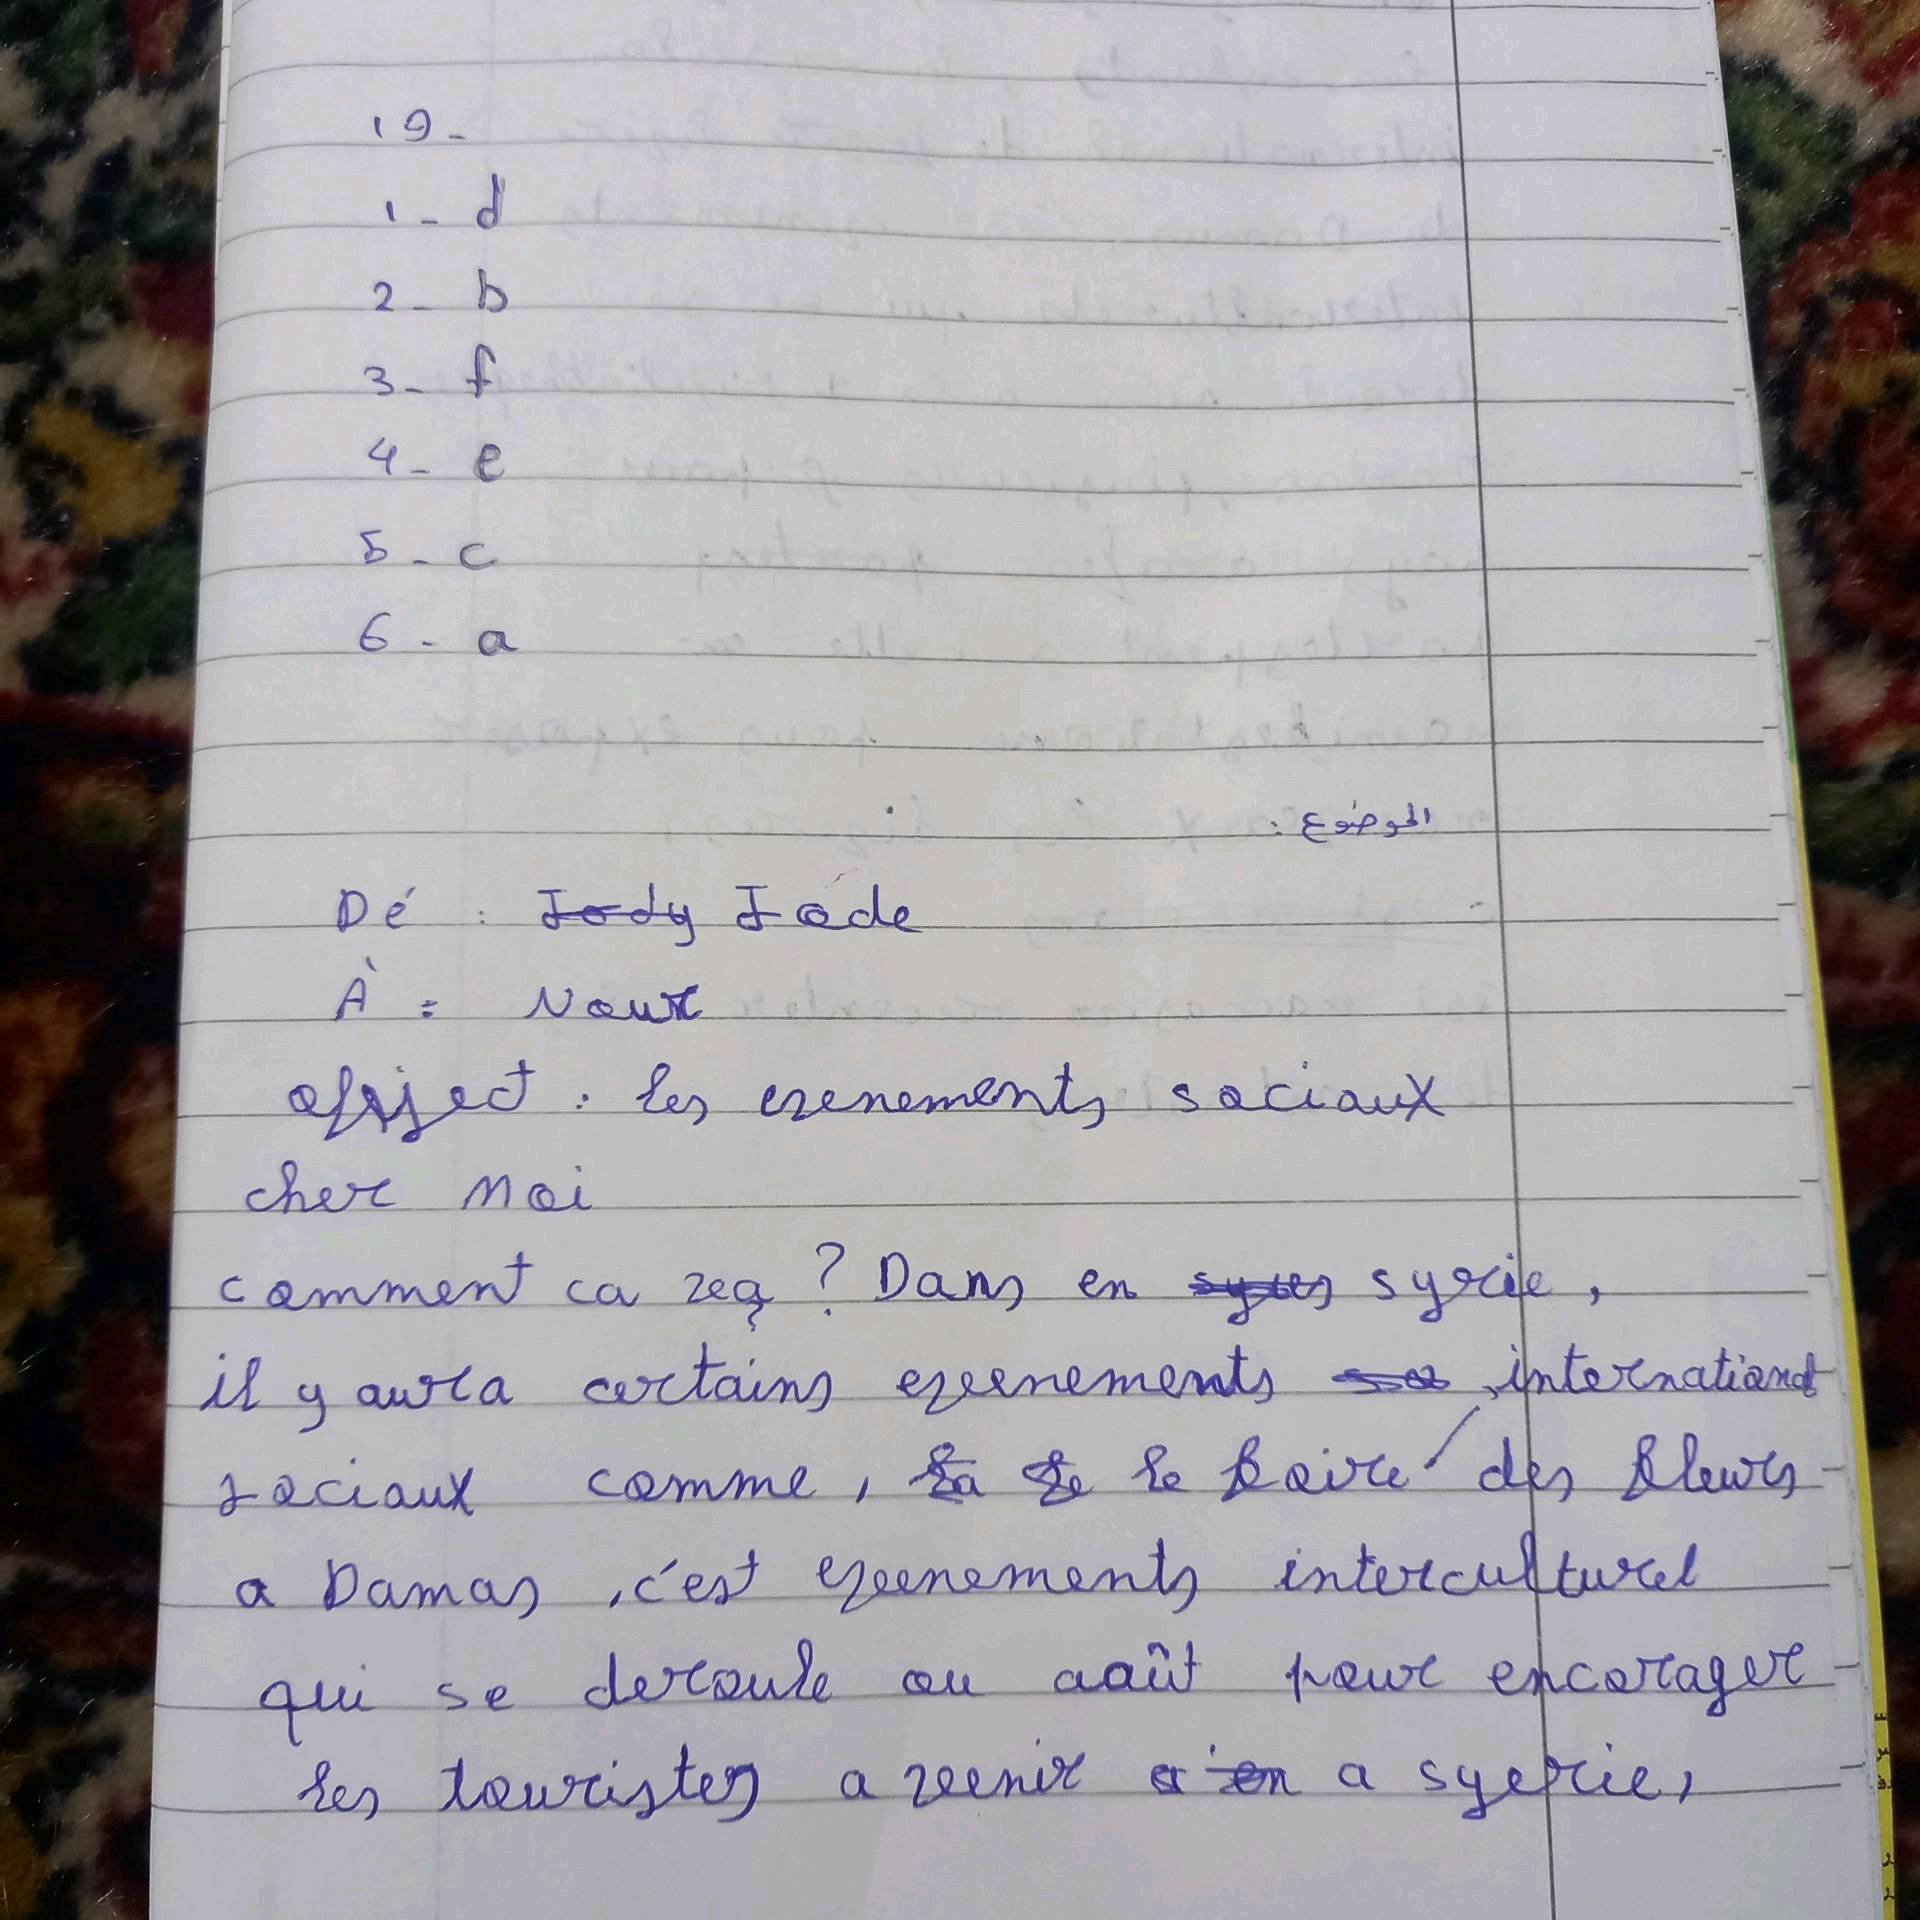 19-
1- d
2- b
3- f
4- e
5- c
6- a
الموضوع :
Dé : Jody Jade
À : Nour
objject : les evenements sociaux
cher Moi
comment ca vea ? Dans en syrie,
il y aura certains eveenements international
sociaux comme, la le le foire des fleurs
a Damas, c'est eveenements intercultural
qui se deroule au août pour encorager
les touristes a veenir en a syerie,